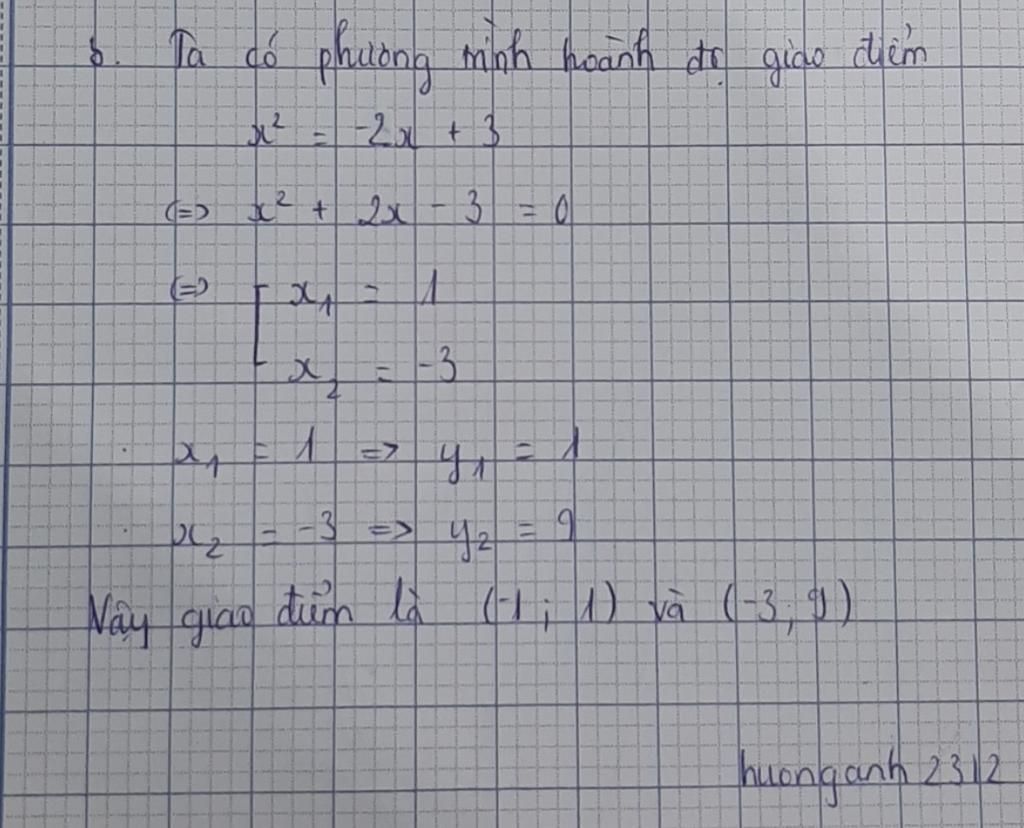 b. Ta có phương trình hoành độ giao điểm
x² = -2x + 3
<=> x² + 2x - 3 = 0
<=> [ x₁ = 1
x₂ = -3
· x₁ = 1 => y₁ = 1
· x₂ = -3 => y₂ = 9
Vậy giao điểm là (-1; 1) và (-3; 9)
huonganh 2312